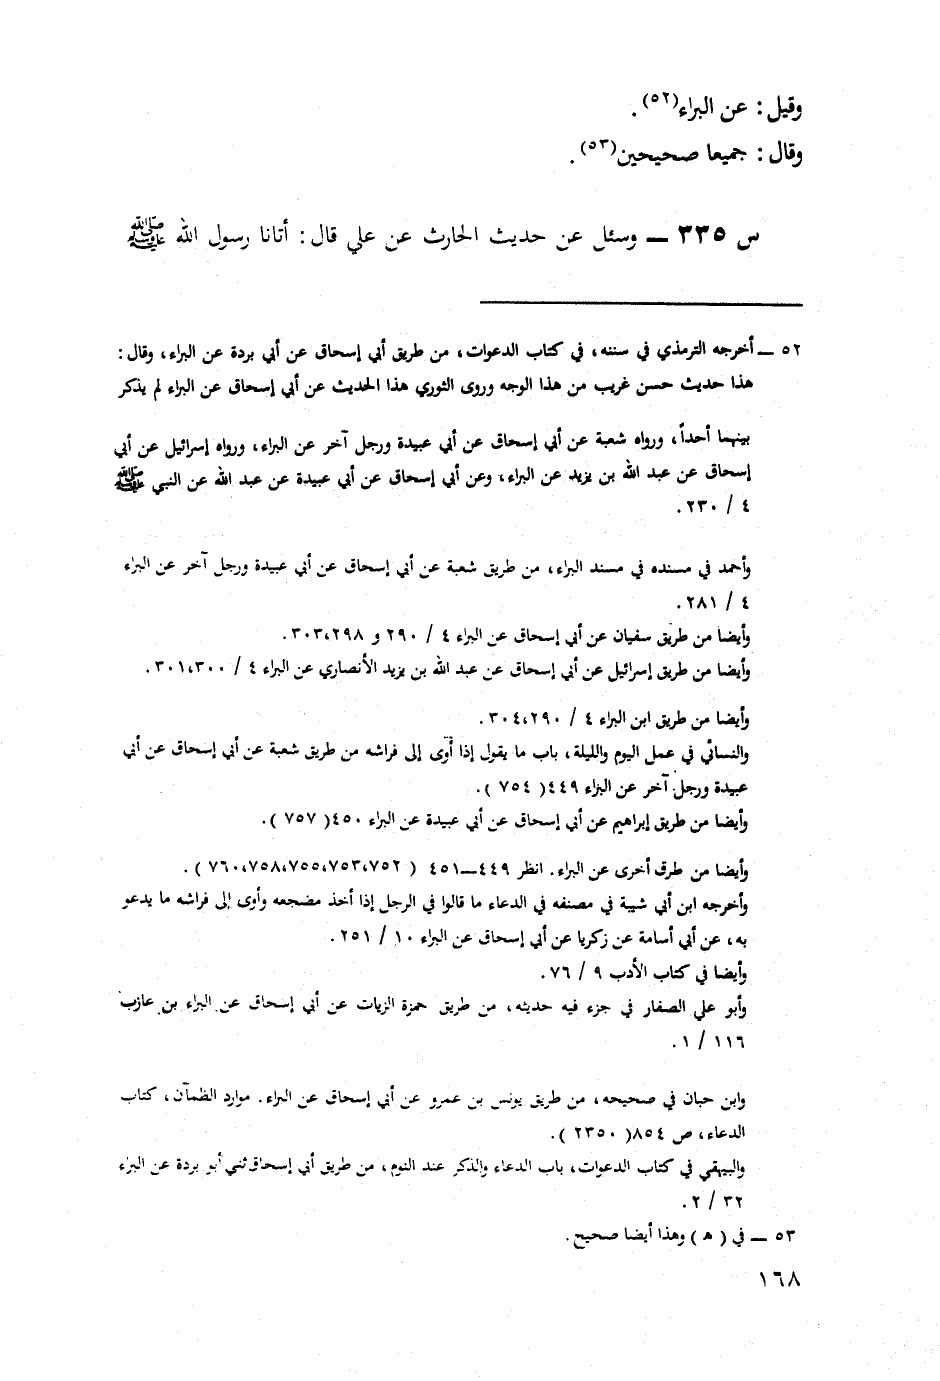 وقيل : عن البراء(٥٢) .
وقال : جميعا صحيحين(٥٣) .
س ٣٣٥ — وسئل عن حديث الحارث عن علي قال : أتانا رسول الله ﷺ
٥٢ — أخرجه الترمذي في سننه ، في كتاب الدعوات ، من طريق أبي إسحاق عن أبي بردة عن البراء ، وقال :
هذا حديث حسن غريب من هذا الوجه وروى الثوري هذا الحديث عن أبي إسحاق عن البراء لم يذكر
بينهما أحداً ، ورواه شعبة عن أبي إسحاق عن أبي عبيدة ورجل آخر عن البراء ، ورواه إسرائيل عن أبي
إسحاق عن عبد الله بن يزيد عن البراء ، وعن أبي إسحاق عن أبي عبيدة عن عبد الله عن النبي ﷺ
٤ / ٢٣٠ .
وأحمد في مسنده في مسند البراء ، من طريق شعبة عن أبي إسحاق عن أبي عبيدة ورجل آخر عن البراء
٤ / ٢٨١ .
وأيضا من طريق سفيان عن أبي إسحاق عن البراء ٤ / ٢٩٠ و ٣٠٣،٢٩٨ .
وأيضا من طريق إسرائيل عن أبي إسحاق عن عبد الله بن يزيد الأنصاري عن البراء ٤ / ٣٠١،٣٠٠ .
وأيضا من طريق ابن البراء ٤ / ٣٠٤،٢٩٠ .
والنسائي في عمل اليوم والليلة ، باب ما يقول إذا أوى إلى فراشه من طريق شعبة عن أبي إسحاق عن أبي
عبيدة ورجل آخر عن البراء ٤٤٩( ٧٥٤ ) .
وأيضا من طريق إبراهيم عن أبي إسحاق عن أبي عبيدة عن البراء ٤٥٠( ٧٥٧ ) .
وأيضا من طرق أخرى عن البراء . انظر ٤٤٩—٤٥١ ( ٧٦٠،٧٥٨،٧٥٥،٧٥٣،٧٥٢ ) .
وأخرجه ابن أبي شيبة في مصنفه في الدعاء ما قالوا في الرجل إذا أخذ مضجعه وأوى إلى فراشه ما يدعو
به ، عن أبي أسامة عن زكريا عن أبي إسحاق عن البراء ١٠ / ٢٥١ .
وأيضا في كتاب الأدب ٩ / ٧٦ .
وأبو علي الصفار في جزء فيه حديثه ، من طريق حمزة الزيات عن أبي إسحاق عن البراء بن عازب
١١٦ / ١ .
وابن حبان في صحيحه ، من طريق يونس بن عمرو عن أبي إسحاق عن البراء . موارد الظمآن ، كتاب
الدعاء ، ص ٨٥٤( ٢٣٥٠ ) .
والبيهقي في كتاب الدعوات ، باب الدعاء والذكر عند النوم ، من طريق أبي إسحاق ثني أبو بردة عن البراء
٣٢ / ٢ .
٥٣ — في ( هـ ) وهذا أيضا صحيح .
١٦٨